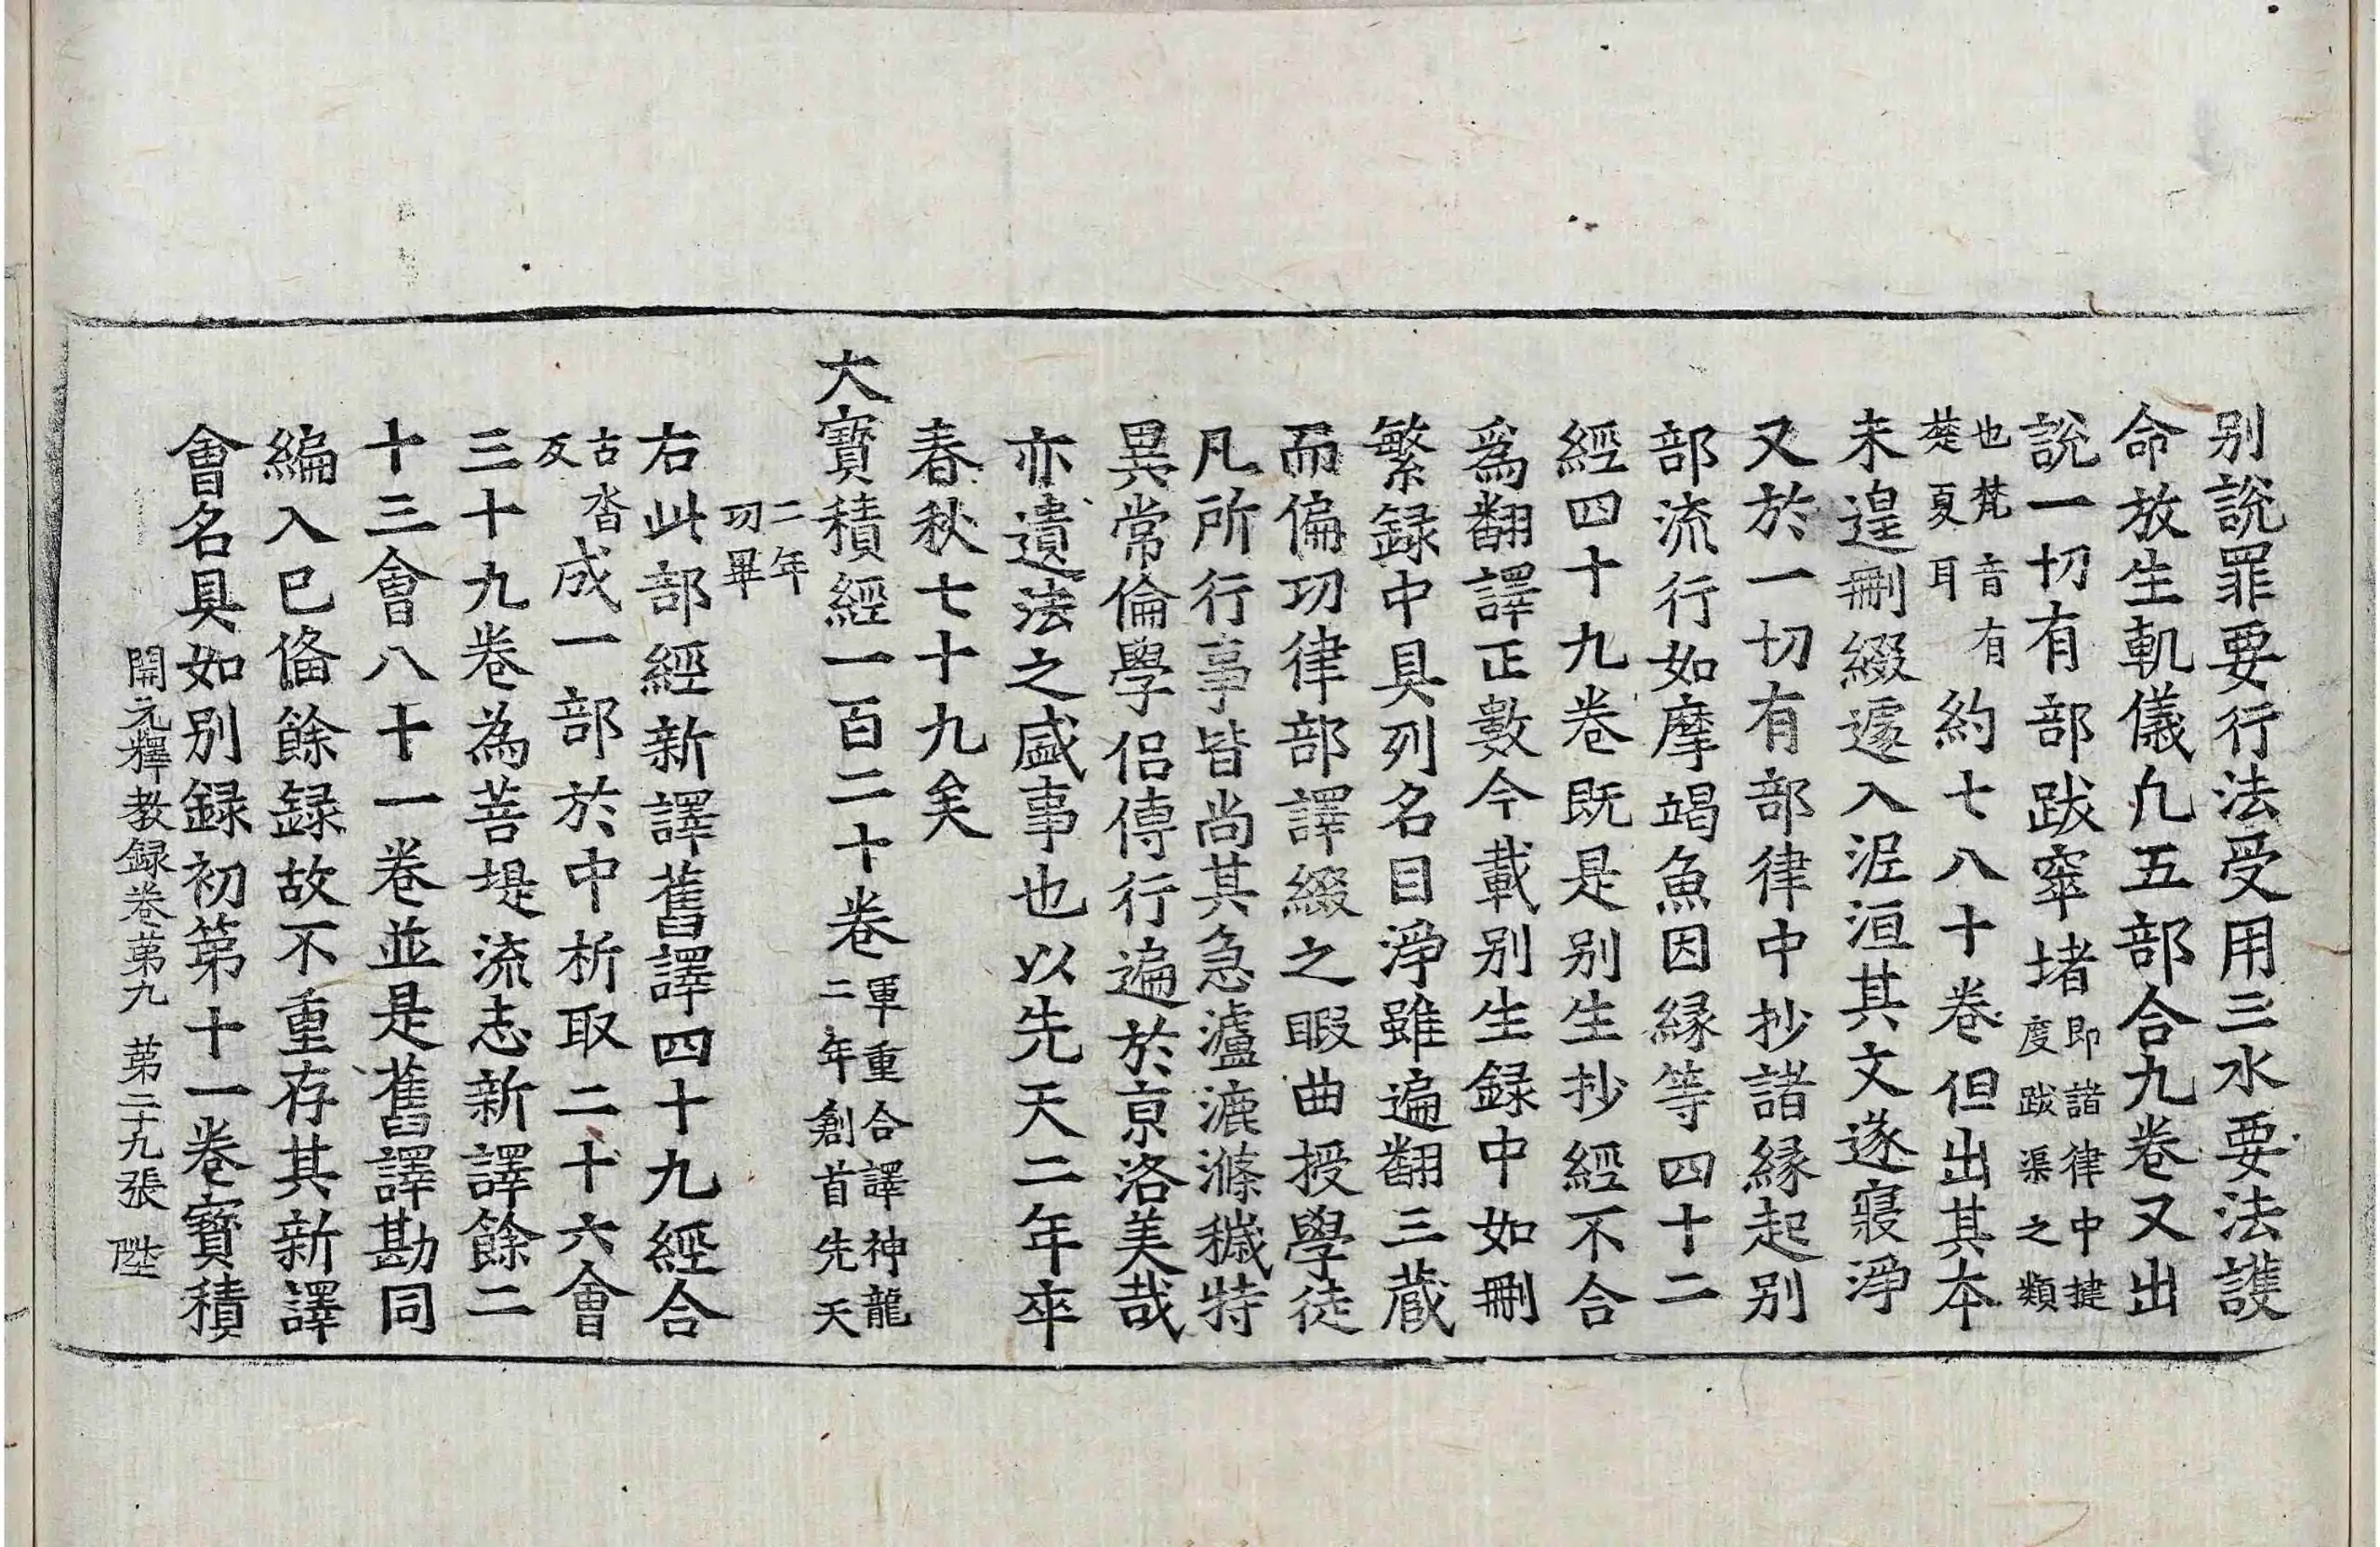 别說罪要行法受用三水要法護
命放生軌儀凢五部合九卷又出
說一切有部跋窣堵即諸律中揵度跋渠之類
也梵音有楚夏耳約七八十卷但出其本
未遑刪綴遽入泥洹其文遂寢淨
又於一切有部律中抄諸縁起别
部流行如摩竭魚因縁等四十二
經四十九卷既是别生抄經不合
爲翻譯正數今載别生録中如刪
繁録中具列名目淨雖遍翻三藏
而偏功律部譯綴之暇曲授學徒
凡所行事皆尚其急瀘漉滌穢特
異常倫學侣傳行遍於京洛美哉
亦遺法之盛事也以先天二年卒
春秋七十九矣
大寶積經一百二十卷單重合譯神龍二年創首先天
二年功畢
右此部經新譯舊譯四十九經合
古沓反成一部於中析取二十六會
三十九卷為菩提流志新譯餘二
十三會八十一卷並是舊譯勘同
編入已俻餘録故不重存其新譯
會名具如别録初第十一卷寶積
開元釋教録卷苐九 苐二十九張 陛